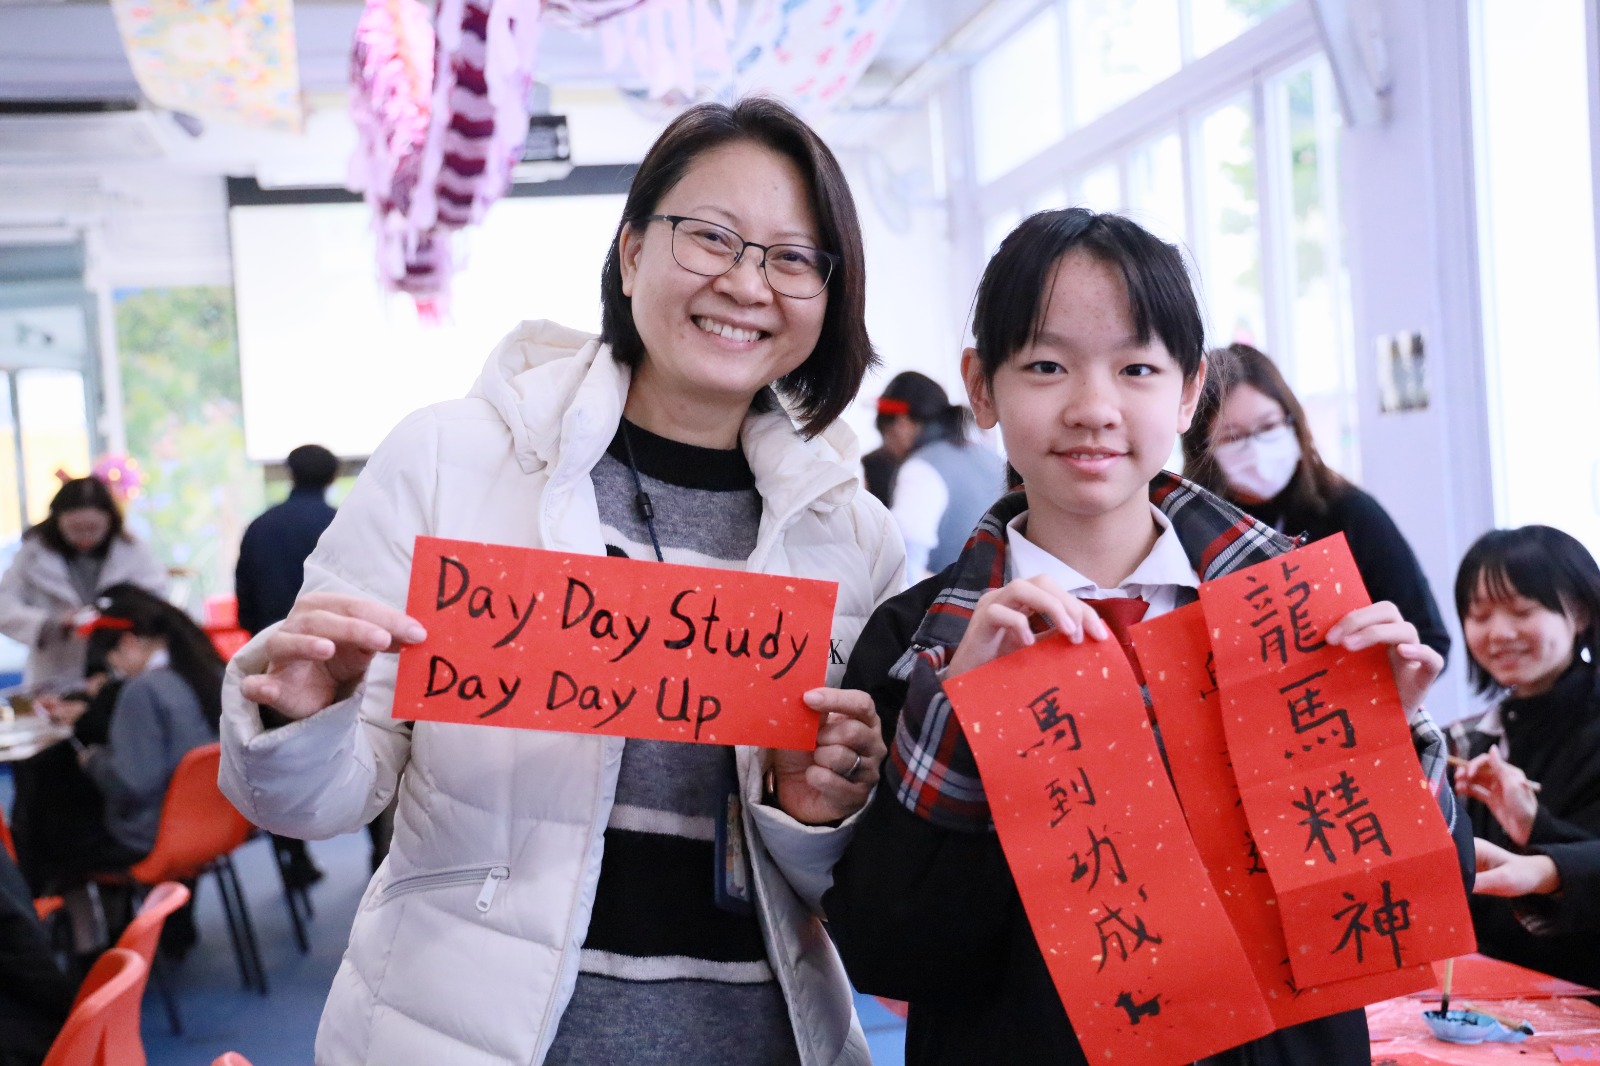 Day Day Study
Day Day Up
馬到功成
龍馬精神